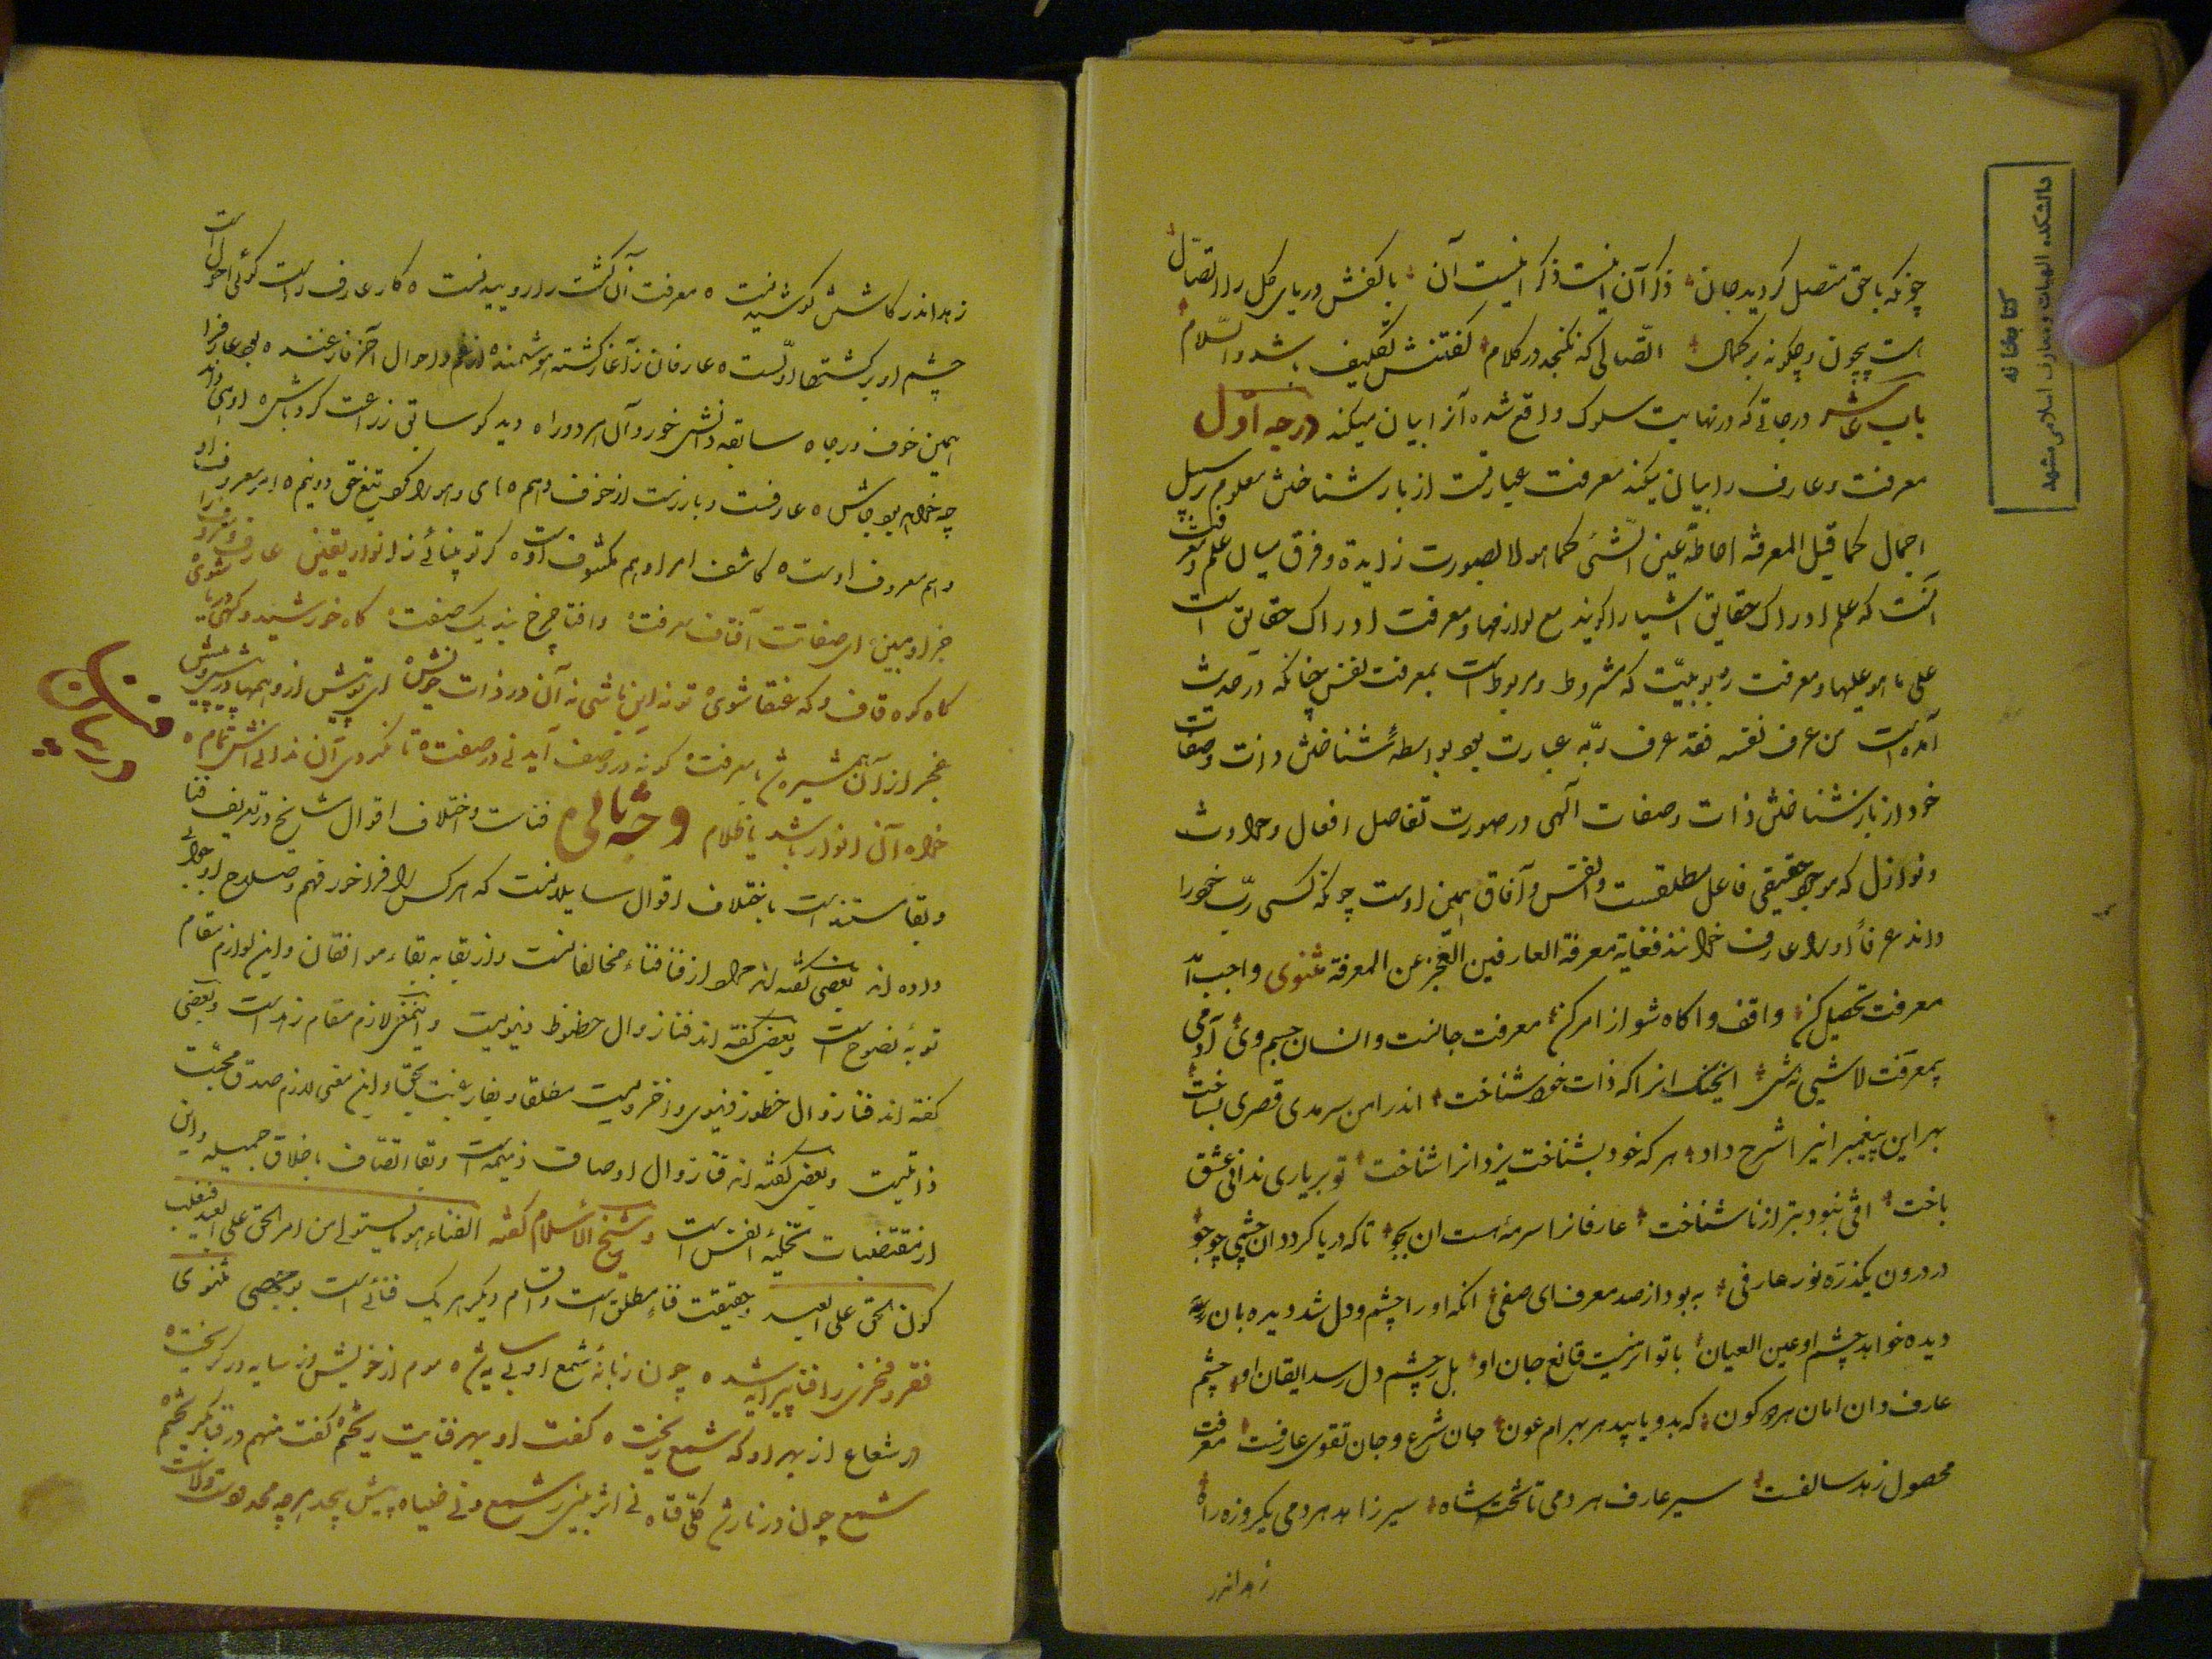 کتابخانه
دانشکده الهیات و معارف اسلامی مشهد
چونکه با حق متصل کردید جان ذکر آن اینست ذکر اینست آن با کفش دریای کل را اتصال
است بیچون و چکونه بر کمال اتصالی که نکنجد در کلام کفتنش تکلیف باشد والسلام
باب درجاتی که در نهایت سلوک واقع شده آنرا بیان میکند درجه اول
معرفت و عارف را بیان میکند معرفت عبارتست از باز شناختن معلوم
اجمال کما قیل المعرفه احاطة عین الشئ کما هو لا بصورت زایدة و فرق میان علم و معرفت
آنست که علم ادراک حقایق اشیا را کویند مع لوازمها و معرفت ادراک حقایق است
علی ما هو علیها و معرفت ربوبیت که مشروط و مربوط است بمعرفت نفس چنانکه در حدیث
آمده است من عرف نفسه فقد عرف ربه عبارت بود بواسطهٔ شناختن ذات و صفات
خود از باز شناختن ذات و صفات الهی در صورت تفاصیل افعال و حوادث
و نوازل که موجد حقیقی فاعل مطلقست و انفس و آفاق همین اوست چونکه کسی رب خود را
داند عرفاً او را عارف خوانند فغایة معرفة العارفین العجز عن المعرفة مثنوی واجب آمد
معرفت تحصیل کن واقف و اکاه شو از امر کن معرفت جانست و انسان جسم وی آدمی
بیمعرفت لا شیئ انکسانرا که ذات خود شناخت اندر امن سرمدی قصری بساخت
بهر این پیغمبر انرا شرح داد هر که خود بشناخت یزدانرا شناخت تو بر یاری ندانی عشق
باخت آفتی نبود بتر از ناشناخت عارفانرا سرمهٔ هست آن بجو تا که دریا کردد آن چشمی چو جو
در درون یکذره نور عارفی به بود از صد معرف ای صفی انکه او را چشم دل شد دیده بان
دیده خواهد چشم او عین العیان با تواتر نیست قانع جان او بل ز چشم دل رسد ایقان او چشم
عارف دان امان هر دو کون که بدو یابید هر بهرام عون جان شرع و جان تقوی عارفست معرفت
محصول زهد سالفست سیر عارف هر دمی تا تخت شاه سیر زاهد هر دمی یکروزه راه
زهد اندر
زهد اندر کاشتن کوشیدنست معرفت آن کشت را روییدنست کار عارف راست کو نی احول است
چشم او بر کشتهای اولست عارفان ز آغاز کشته هوشمند از غم و احوال آخر فارغند بود عارف را
همین خوف و رجا سابقه دانیش خورد آن هر دو را دید کو سابق زراعت کرد ماش او همی داند
چه خواهد بود چاش عارفست و باز رست از خوف و بیم های و هو را کرد تیغ حق دو نیم امر معروف او
و هم معروف اوست کاشف اسرار و هم مکشوف اوست کر تو بینائی ز انوار یقینی عارف و معروف را
جز او مبین ای صفاتت آفتاب معرفت و آفتاب چرخ بند یک صفت کاه خورشید و کهی دریا شوی
کاه کوه قاف و که عنقا شوی تو نه این باشی نه آن در ذات خویش ای تو بیش از وهمها وز بیش بیش
وجه ثانی فناست و اختلاف اقوال مشایخ در تعریف فنا
و بقا مستند است باختلاف اقوال سایلانست که هر کس را فراخور فهم و صلاح او جواب
داده اند بعضی کفته اند مراد از فنا فناء مخالفانست و از بقا بقاء موافقان و این لوازم مقام
توبهٔ نصوح است و بعضی کفته اند فنا زوال حظوظ دنیویست و اینمعنی لازم مقام زهد است و بعضی
کفته اند فنا زوال حظوظ دنیوی و اخرویست مطلقا و بقا رغبت بحق و این معنی لازم صدق محبت
ذاتیست و بعضی کفته اند فنا زوال اوصاف ذمیمه است و بقا اتصاف باخلاق جمیله و این
از مقتضیات تخلیهٔ نفس است و شیخ الاسلام کفته الفناء هو ان یستولی امر الحق علی العبد فیغلب
کون الحق علی العبد حقیقت فناء مطلق است و اقسام دیکر هر یک فنائی است بوجهی مثنوی
فقر و فخری را فنا پیرایه شد چون زبانهٔ شمع او بی سایه شد موم از خویش وز سایه در کریخت
در شعاع از بهر او که شمع ریخت کفت او بهر فنایت ریختم کفت منهم در فنا بکریختم
شمع چون در نار شد کلی فنا نی اثر بینی ز شمع و نی ضیا
درباب فنا